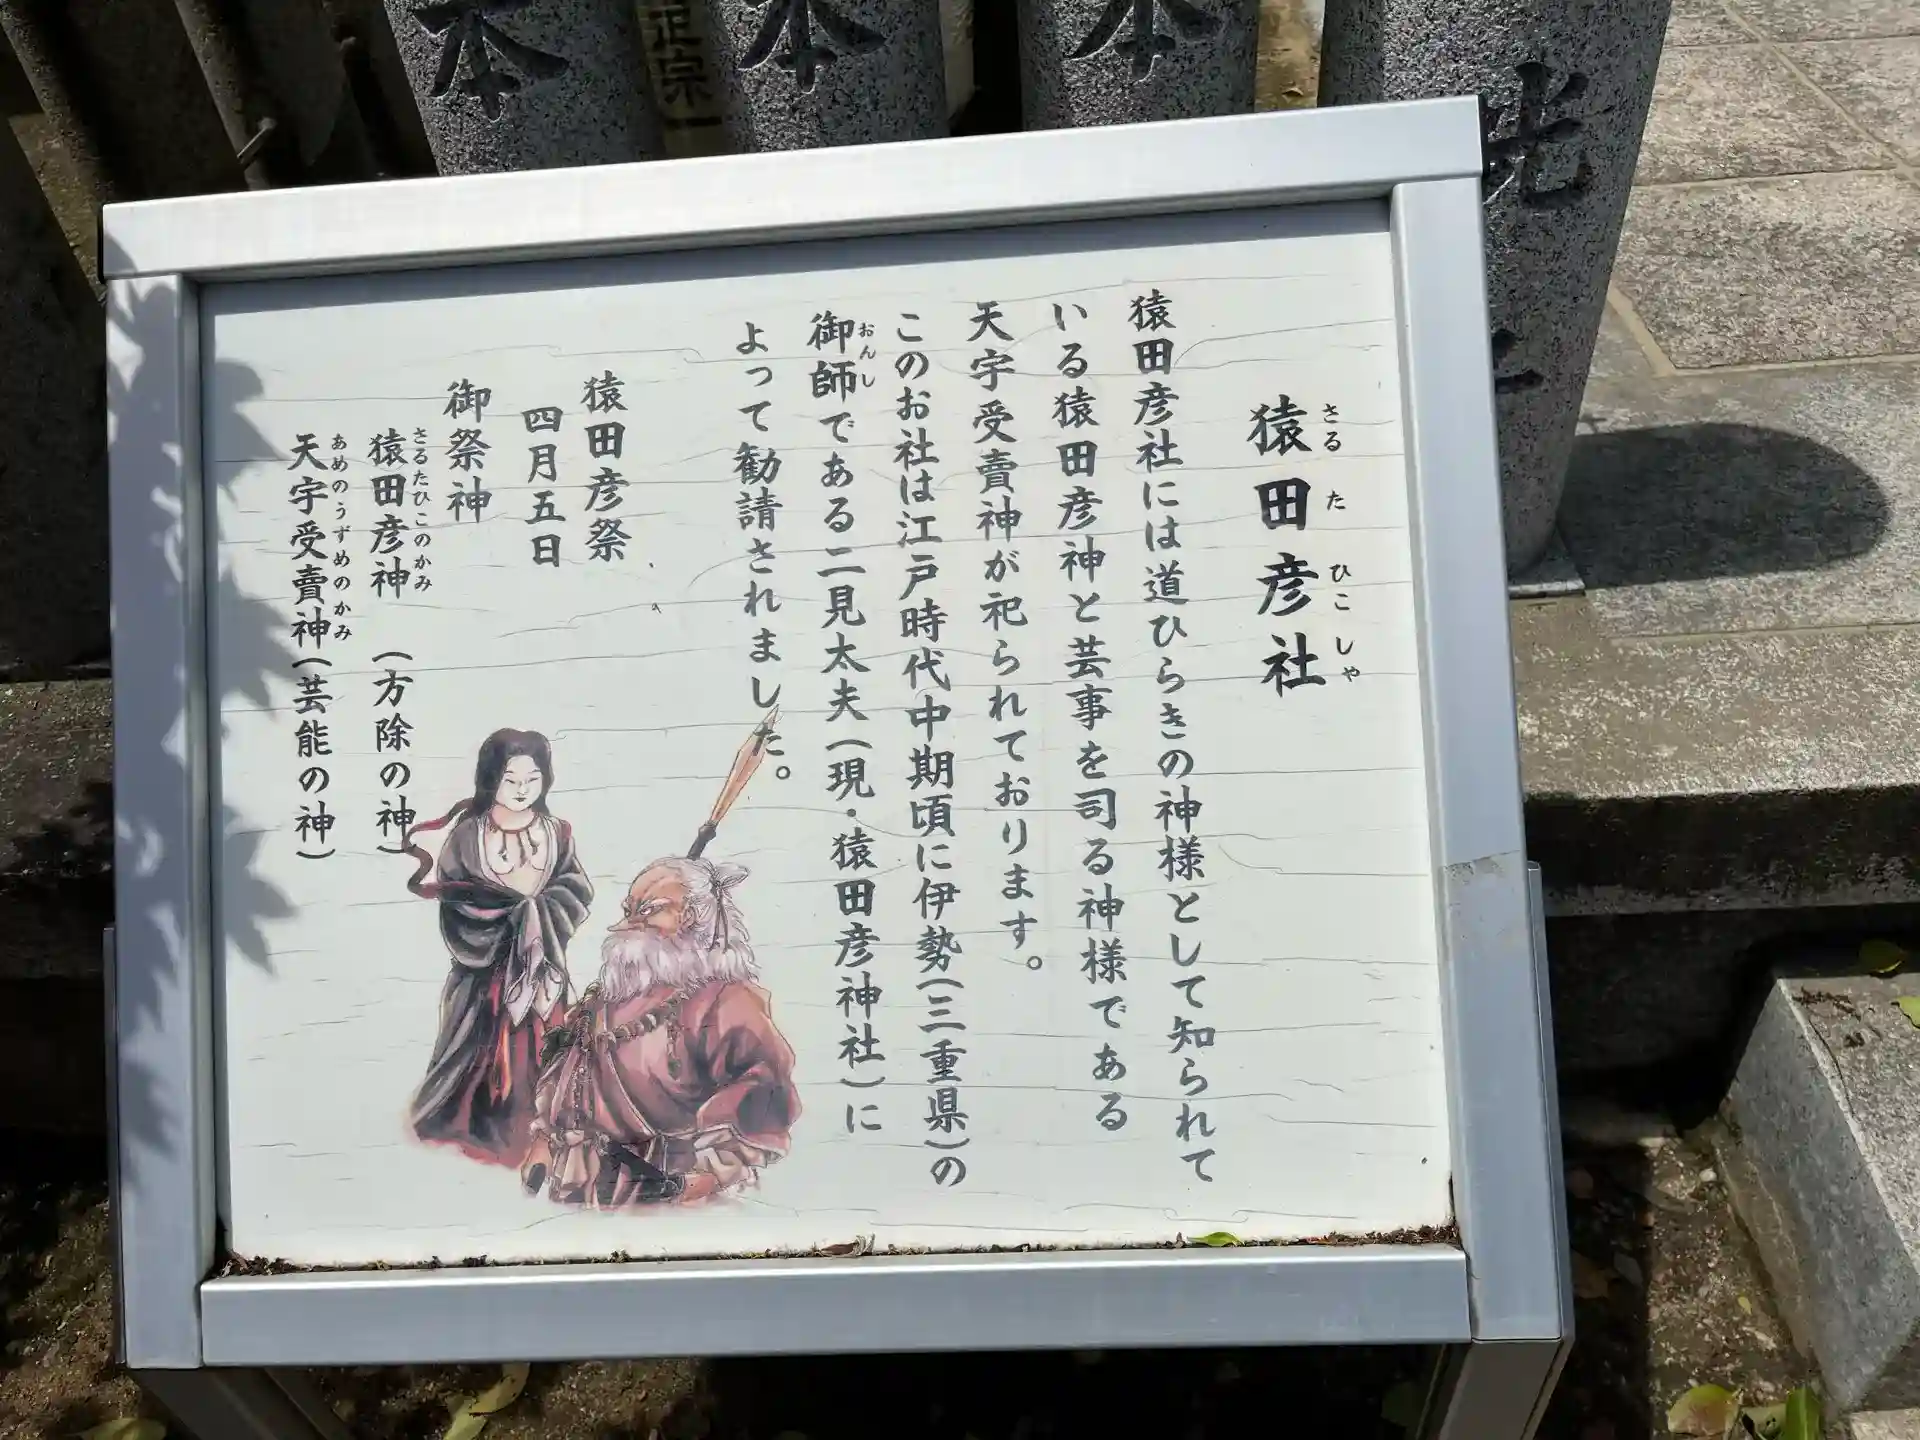 猿田彦社
さる た ひこ しゃ
猿田彦社には道ひらきの神様として知られて
いる猿田彦神と芸事を司る神様である
天宇受賣神が祀られております。
このお社は江戸時代中期頃に伊勢(三重県)の
御師である二見太夫(現・猿田彦神社)に
おんし
よって勧請されました。
猿田彦祭
四月五日
御祭神
猿田彦神 (方除の神)
さるたひこのかみ
天宇受賣神(芸能の神)
あめのうずめのかみ
本
正宗一
本
本